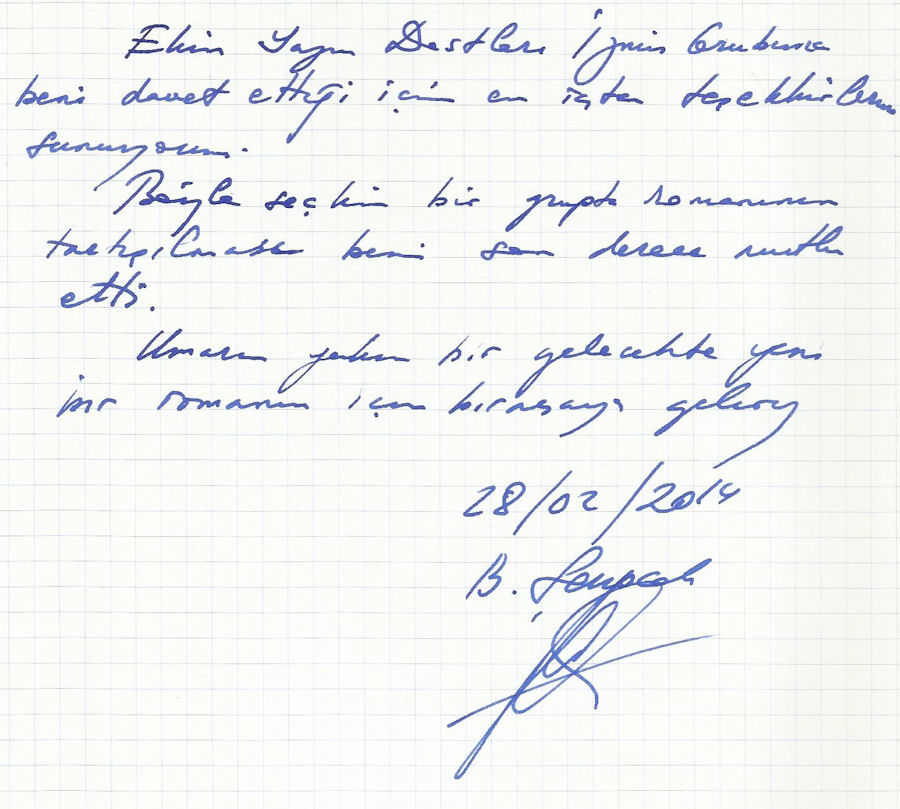 Ekin Yazın Dostları İzmir Grubuna
beni davet ettiği için en içten teşekkürlerimi
sunuyorum.
Böyle seçkin bir grupta romanımın
tartışılması beni son derece mutlu
etti.
Umarım yakın bir gelecekte yeni
bir romanım için biraraya geliriz
28/02/2014
B.